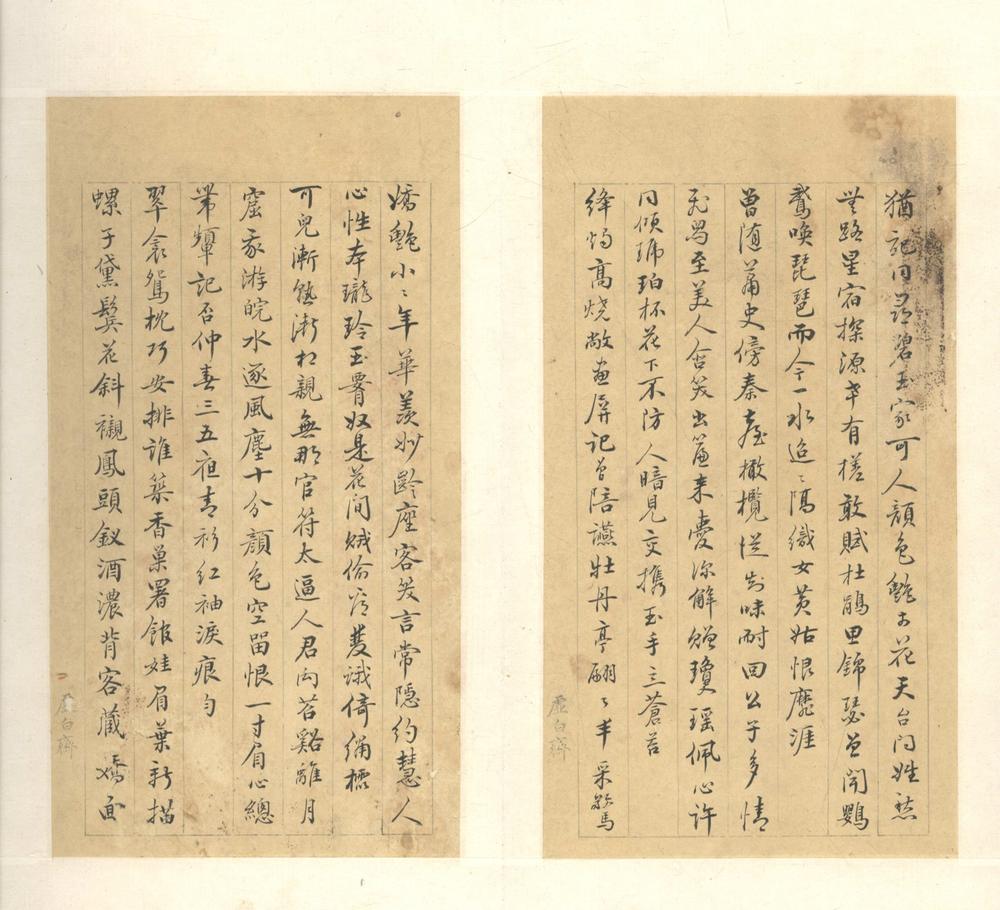 猶記同尋碧玉家可人顏色豔於花天台門姓愁
無路星宿探源幸有槎敢賦杜鵑思錦瑟曾聞鸚
鵡喚琵琶而今一水迢〻隔織女黃姑恨靡涯
曾隨蕭史傍秦臺橄欖從知味耐回公子多情
至美人含笑出簾來愛深解贈瓊瑤佩心許
同傾琥珀杯花下不防人暗見交攜玉手立蒼苔
絳燭高燒敞畫屏記曾陪讌牡丹亭翩〻丰采驚
虛白齋
嬌豔小〻年華羨妙齡座客笑言常隱約慧人
心性本瓏玲玉簫奴是花間賊偷雙蛾倚繡櫺
可兒漸熟漸相親無那官符太逼人君向苕谿離月
窟我游皖水逐風塵十分顏色空留恨一寸眉心總
帶顰記否仲春三五夜青衫紅袖淚痕勻
翠衾鴛枕巧安排誰築香巢署館娃眉葉新描
螺子黛鬢花斜襯鳳頭釵酒濃背客藏嬌面
虛白齋